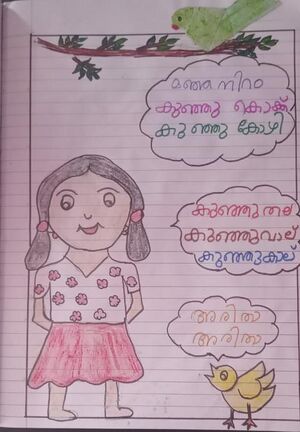 മഞ്ഞനിറം
കുഞ്ഞു കൊക്ക്
കുഞ്ഞു കോഴി
കുഞ്ഞുതല
കുഞ്ഞുവാല്
കുഞ്ഞുകാല്
അരിതാ
അരിതാ